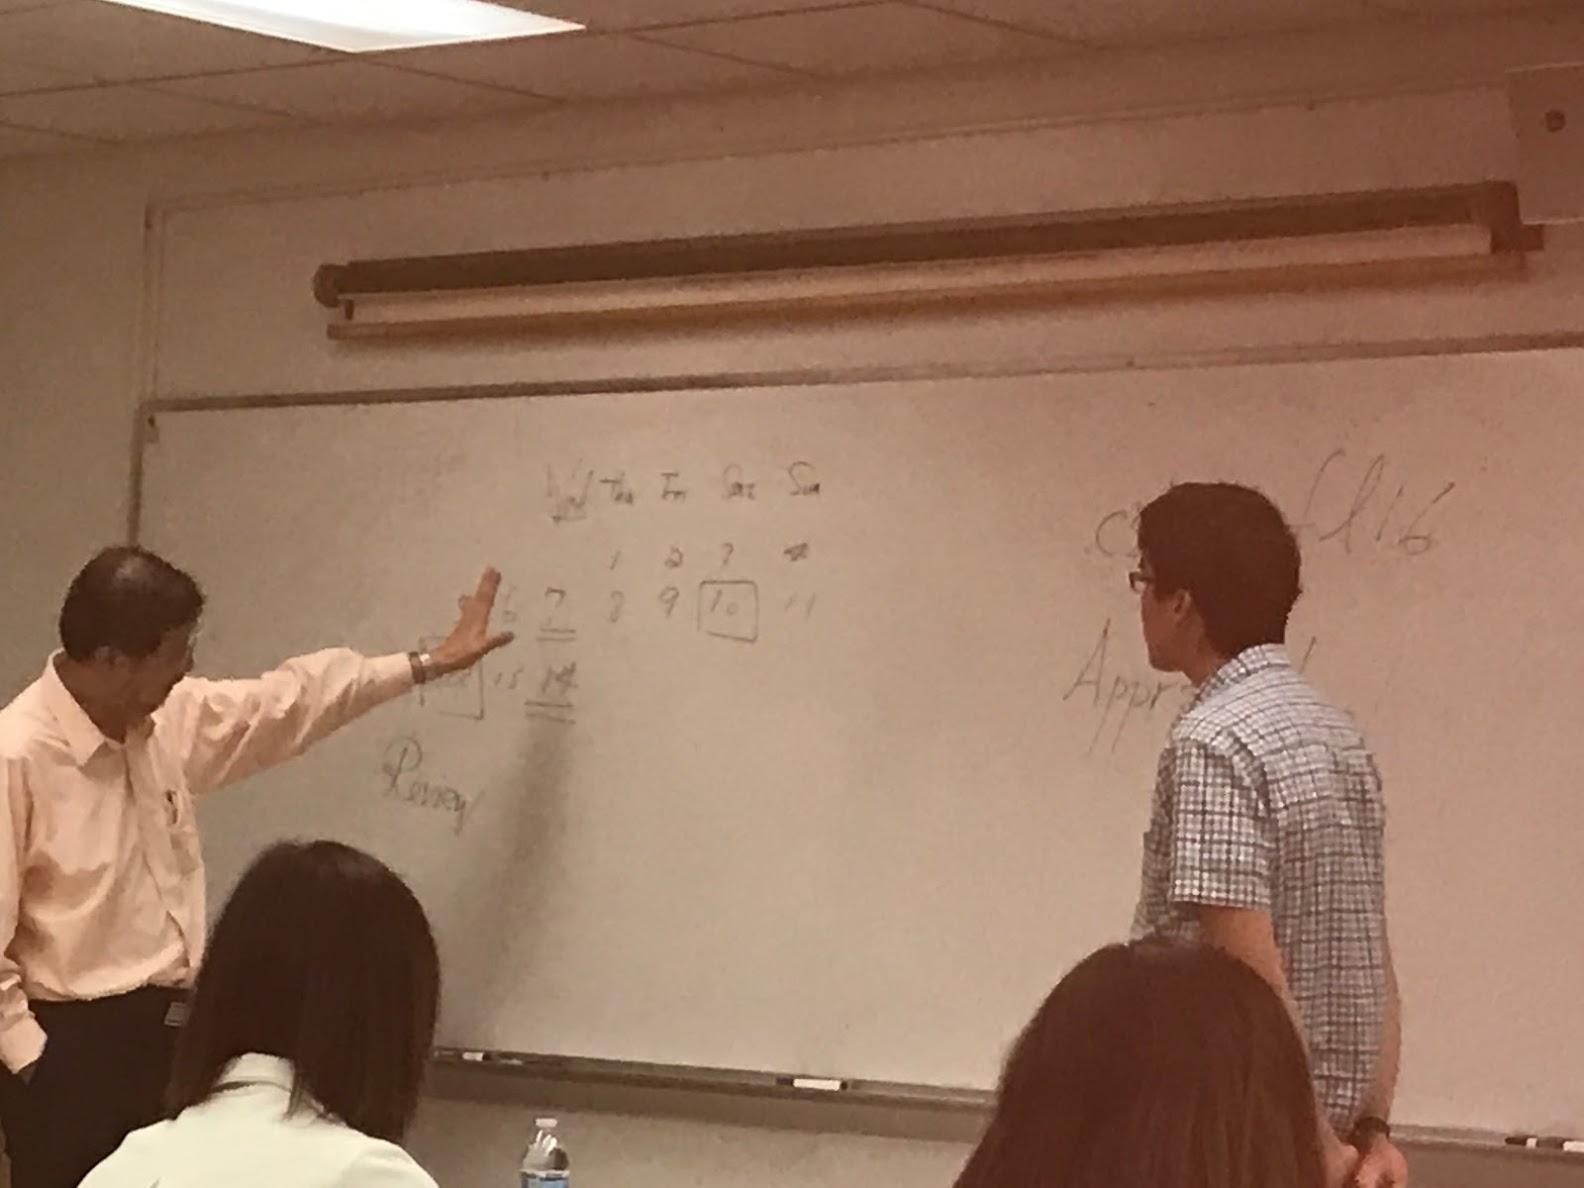 Wed Thu Fri Sat Sun
1 2 3 4
6 7 8 9 10 11
13 14
Review
fl16
Appr